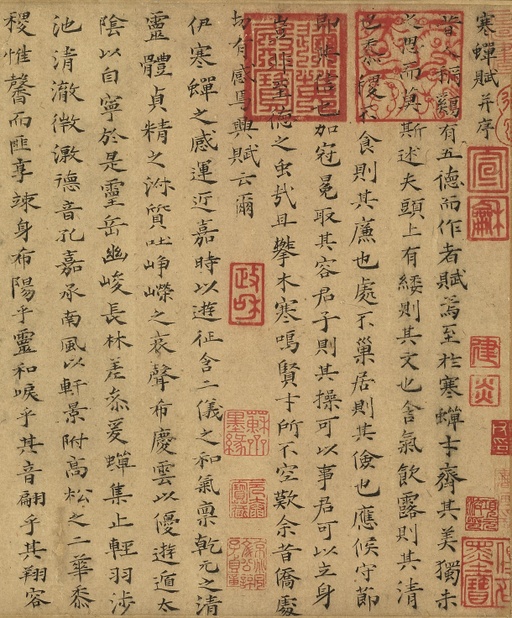 寒蟬賦并序
昔人稱鷄有五德而作者賦焉至於寒蟬才齊其美獨未
之思而莫斯述夫頭上有緌則其文也含氣飲露則其清
也黍稷不食則其廉也處不巢居則其儉也應候守節
則其信也加冠冕取其容君子則其操可以事君可以立身
豈非至德之虫哉且攀木寒鳴賢才所不空歎余昔僑處
切有感焉興賦云爾
伊寒蟬之感運近嘉時以遊征含二儀之和氣稟乾元之清
靈體貞精之淑質吐崢嶸之哀聲希慶雲以優遊遁太
陰以自寧於是靈岳幽峻長林差叅爰蟬集止輕羽涉
池清澈微激德音孔嘉承南風以軒景附高松之二華黍
稷惟馨而匪享竦身布陽乎靈和唳乎其音翩乎其翔容
宣龢
建炎
政和